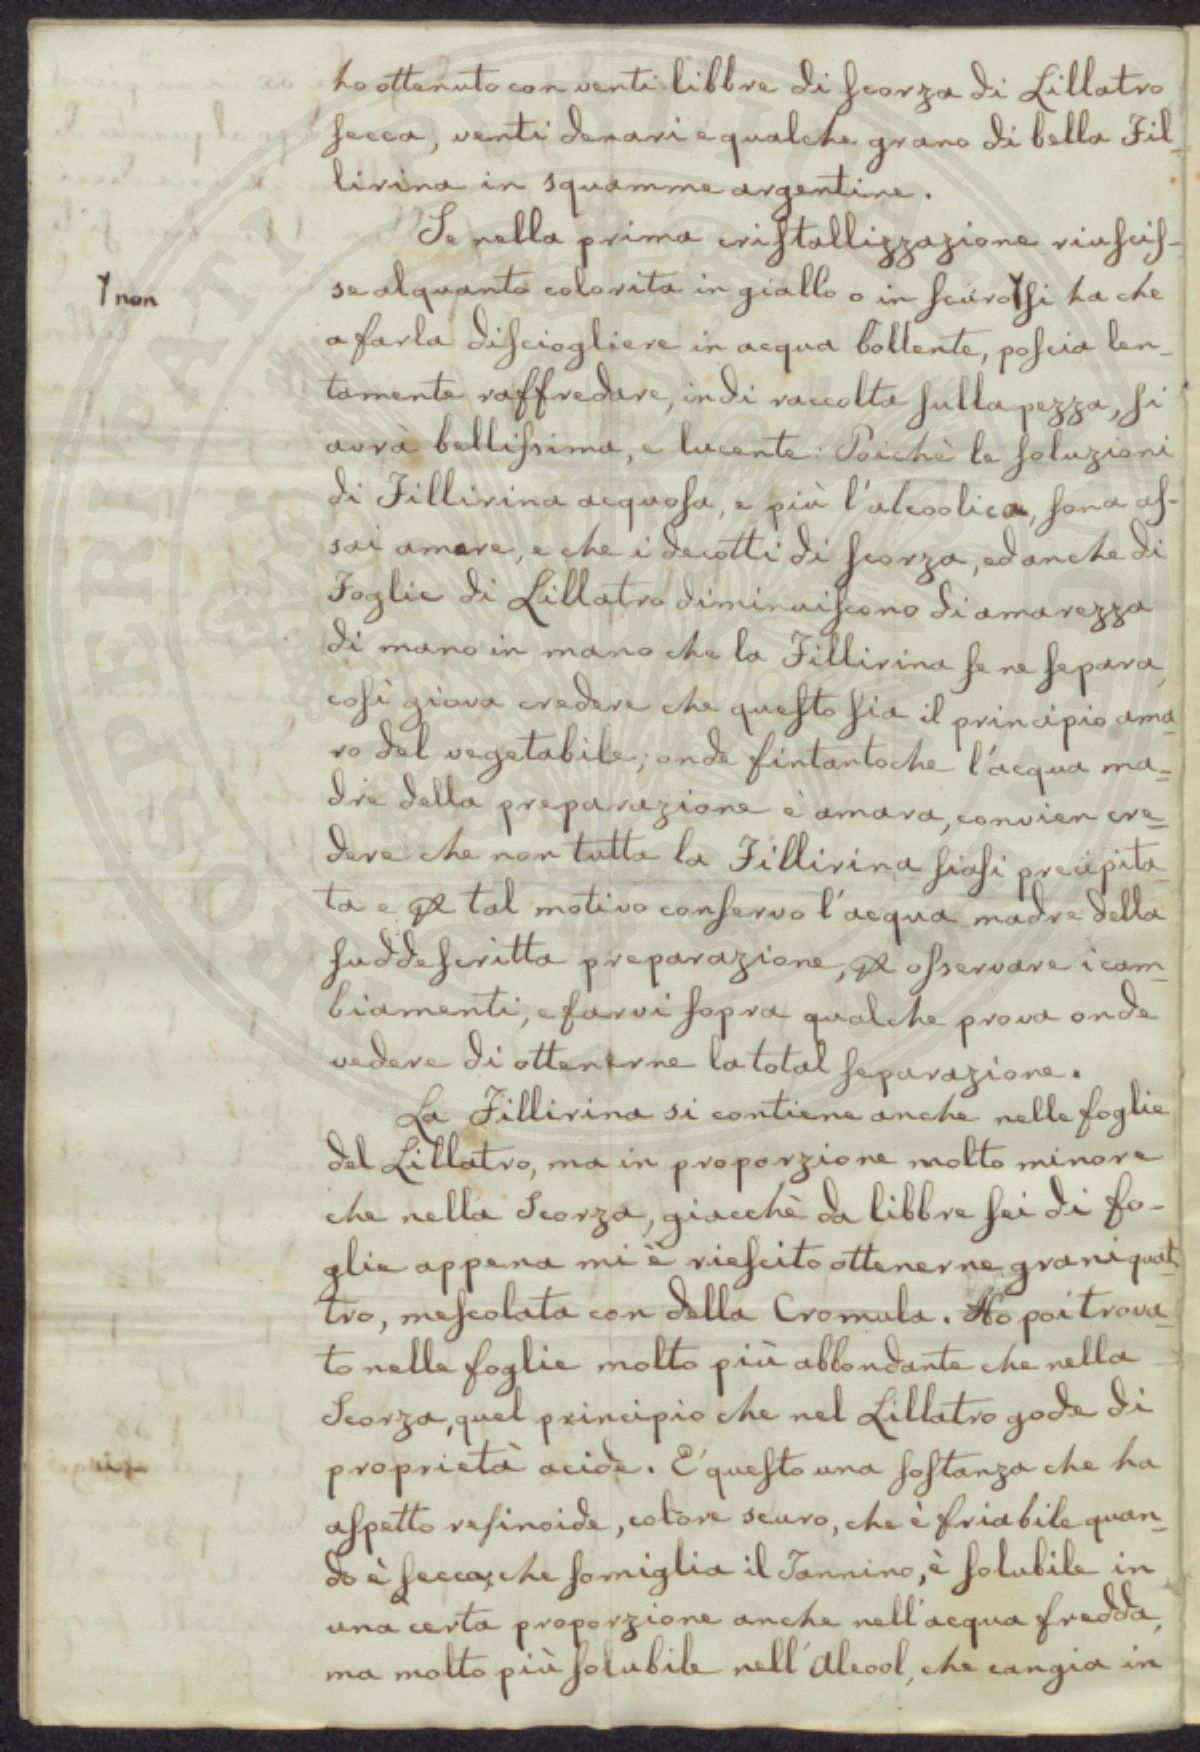 ho ottenuto con venti libbre di scorza di Lillatro
secca, venti denari e qualche grano di bella Fil-
lirina in squamme argentine.
Se nella prima cristallizzazione riuscis-
se alquanto colorita in giallo o in scuro Ƴ si ha che
Ƴ non
a farla disciogliere in acqua bollente, poscia len-
tamente raffredare, indi raccolta sulla pezza, si
avrà bellissima, e lucente: Poichè le soluzioni
di Fillirina acquosa, e più l'alcoolica, sono as-
sai amare, e che i decotti di scorza, ed anche di
Foglie di Lillatro diminuiscono di amarezza
di mano in mano che la Fillirina se ne separa,
così giova credere che questo sia il principio ama
ro del vegetabile; onde fintantoche l'acqua ma-
dre della preparazione è amara, convien cre-
dere che non tutta la Fillirina siasi precipita-
ta e ꝑ tal motivo conservo l'acqua madre della
suddescritta preparazione, ꝑ osservare i cam-
biamenti, e farvi sopra qualche prova onde
vedere di ottenerne la total separazione.
La Fillirina si contiene anche nelle foglie
del Lillatro, ma in proporzione molto minore
che nella Scorza, giacchè da libbre sei di fo-
glie appena mi è riescito ottenerne grani quat-
tro, mescolata con della Cromula. Ho poi trova-
to nelle foglie molto più abbondante che nella
Scorza, quel principio che nel Lillatro gode di
proprietà acide. E' questo una sostanza che ha
aspetto resinoide, colore scuro, che è friabile quan-
do è secca, che somiglia il Tannino, è solubile in
una certa proporzione anche nell'acqua fredda,
ma molto più solubile nell'Alcool, che cangia in